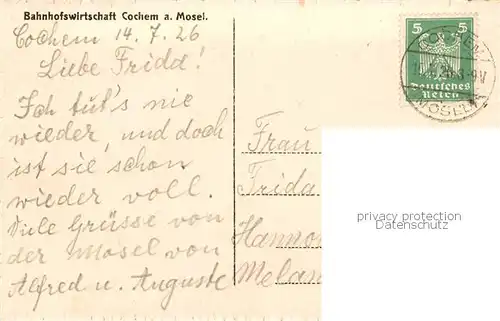 Bahnhofswirtschaft Cochem a. Mosel.
Cochem 14. 7. 26
Liebe Fridd!
Ich tut's nie
wieder, und doch
ist sie schon
wieder voll.
Viele Grüsse von
der Mosel von
Alfred u. Auguste
5 5
Deutsches
Reich
COCHEM
8-9V
MOSEL
Frau
Frida
Hanno
Melan
privacy protection
Datenschutz